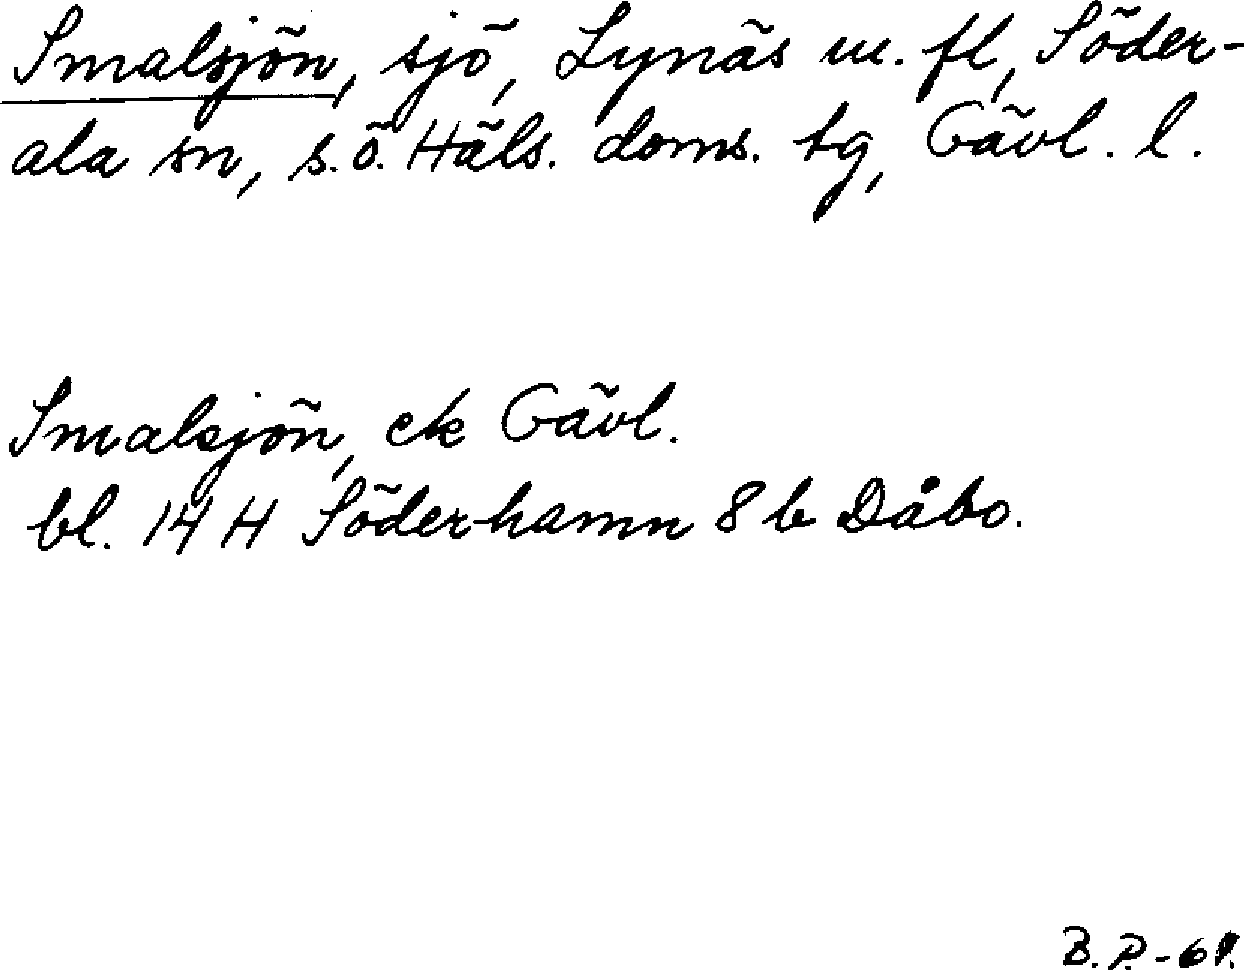 Smalsjön, sjö, Lynäs m. fl, Söder-
ala sn, s.ö. Häls. doms. tg, Gävl. l.
Smalsjön, ek Gävl.
bl. 14 H Söderhamn 8 b Dåbo.
B. P. - 69.